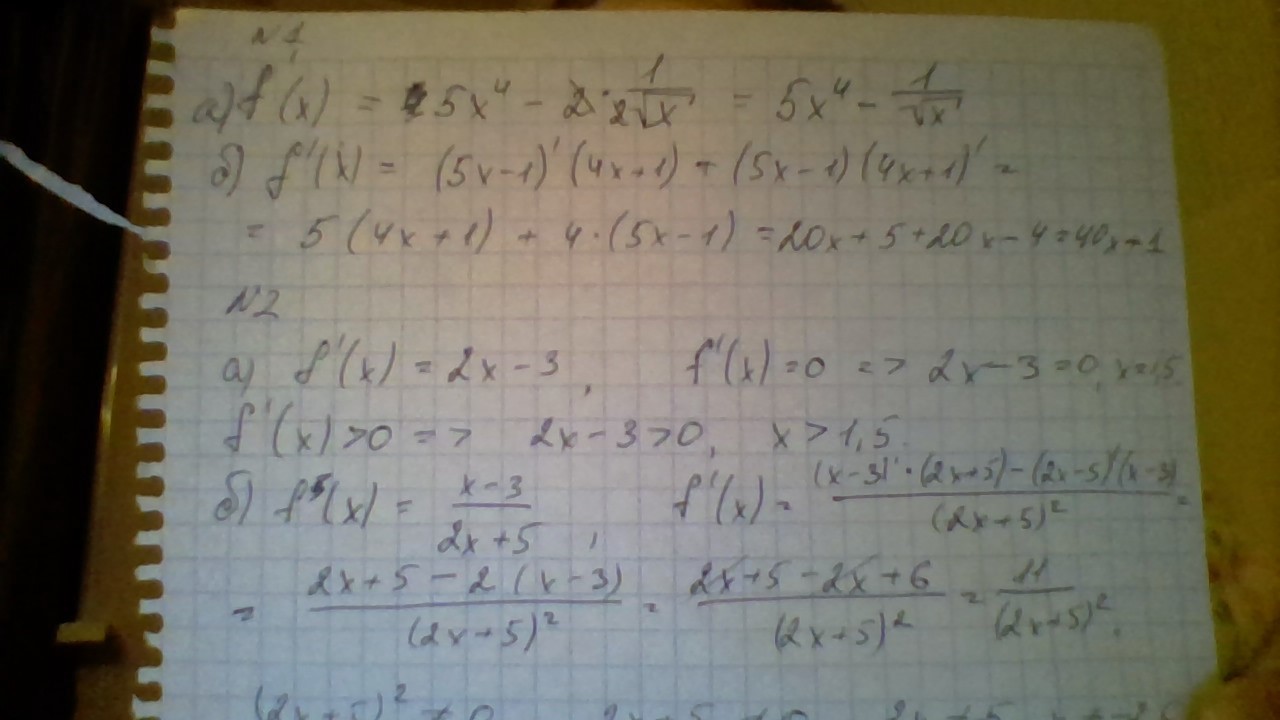 №1
а) f'(x) = 5x⁴ - 2 · 1/(2√x) = 5x⁴ - 1/√x
б) f'(x) = (5x-1)'(4x+1) + (5x-1)(4x+1)' =
= 5(4x+1) + 4·(5x-1) = 20x+5+20x-4=40x+1
№2
а) f'(x) = 2x-3, f'(x)=0 => 2x-3=0, x=1,5.
f'(x)>0 => 2x-3>0, x>1,5.
б) f(x) = (x-3)/(2x+5), f'(x) = ((x-3)'·(2x+5)-(2x-5)'(x-3))/(2x+5)² =
= (2x+5-2(x-3))/(2x+5)² = (2x+5-2x+6)/(2x+5)² = 11/(2x+5)².
(2x+5)² ≠ 0